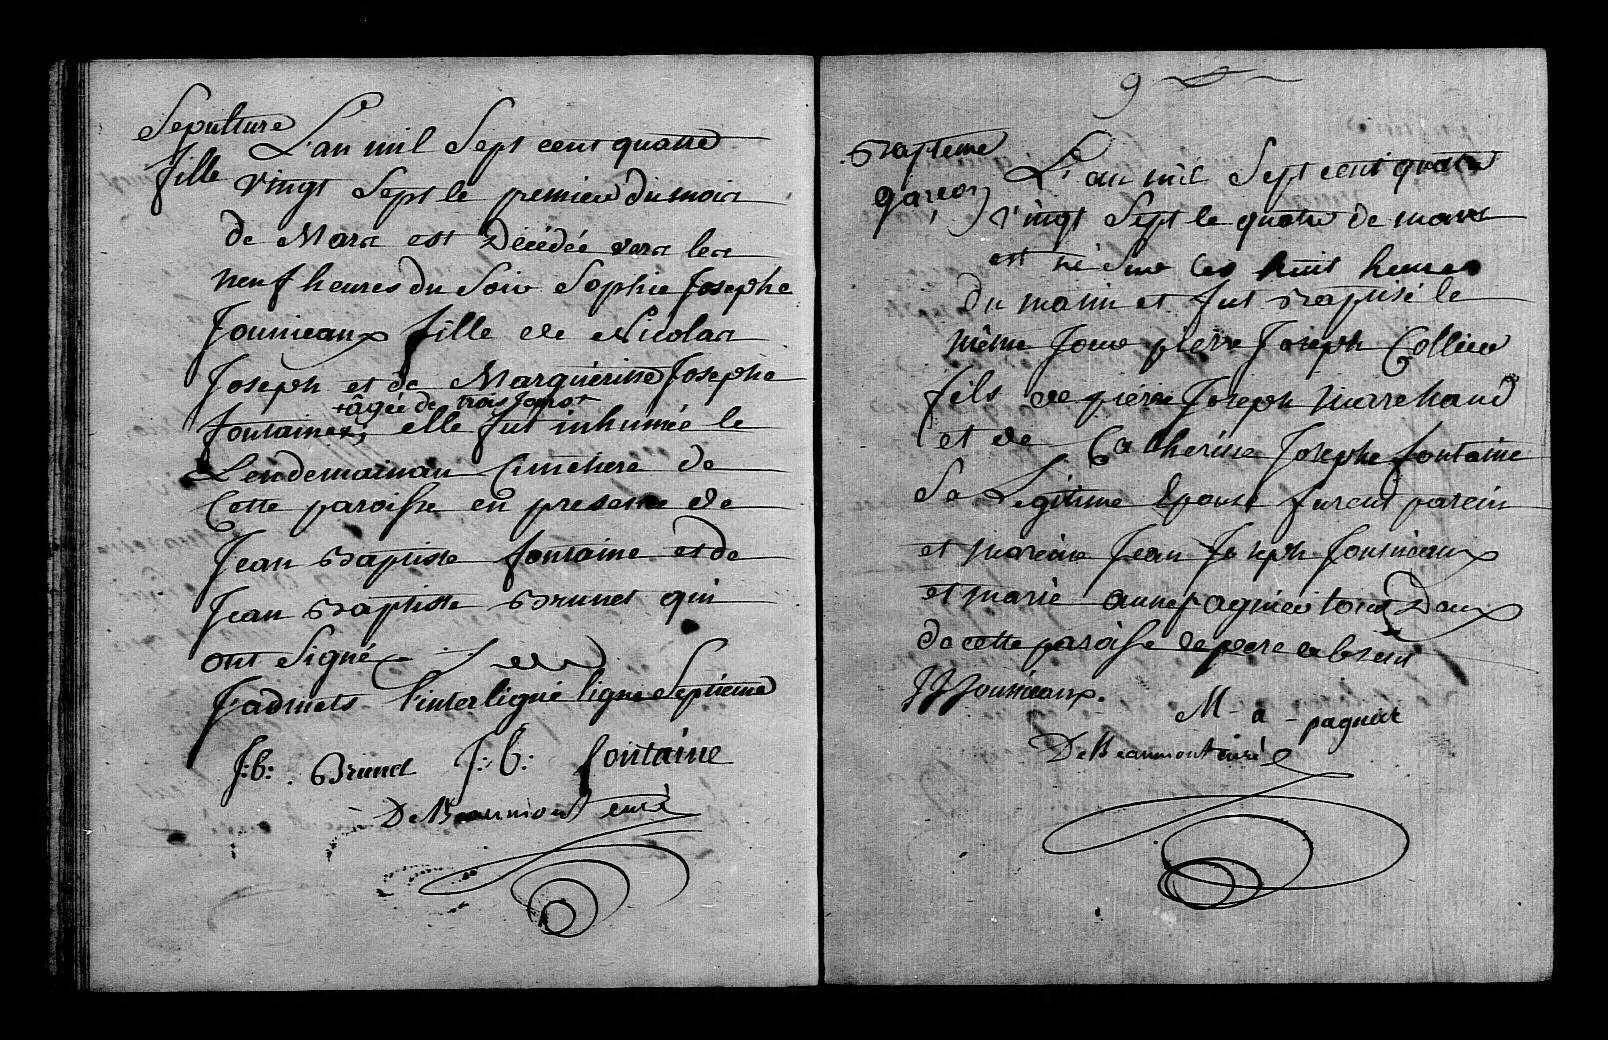 Sepulture
fille
L'an mil Sept cent quatre
vingt Sept le premier du mois
de Mars est Décédée vers les
neuf heures du Soir Sophie Josephe
Journieaux fille de Nicolas
Joseph et de Marguéritte Josephe
+ âgée de trois Jours +
fontaine +, elle fut inhumée le
Lendemain au Cimetiere de
Cette paroisse en presence de
Jean Baptiste fontaine et de
Jean Baptiste Brunet qui
ont Signé
J'admets l'interligne ligne Septieme
J:b: Brunet J:b: fontaine
DeBeaumont curé
9
Bapteme
garçon
L'an mil Sept cent quatre
vingt Sept le quatre de mars
est né Sur les huit heures
du matin et fut Baptisé le
même Jour pierre Joseph Collier
fils de pierre Joseph marchand
et de Catherine Josephe fontaine
Sa Legitime Epouse furent parein
et mareine Jean Joseph Journieaux
et marie anne pagniez tous Deux
de cette paroisse le pere absent
JJ Journieaux.
M - a - pagniez
DeBeaumont curé